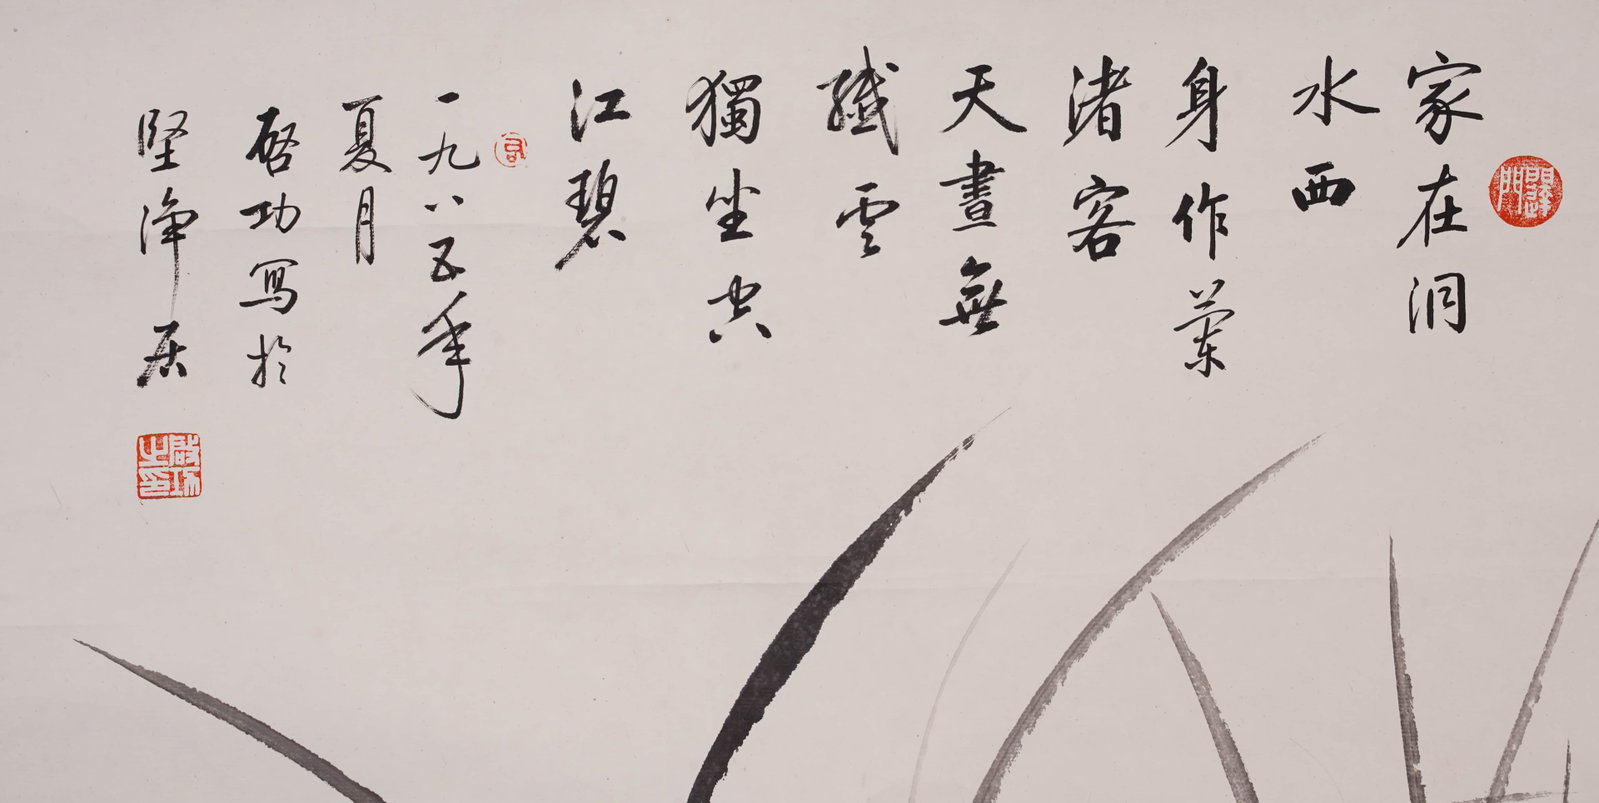 家在洞
水西
身作蘭
渚客
天晝無
纖雲
獨坐空
江碧
一九八五年
夏月
啓功寫於
堅淨居
啟功
之印